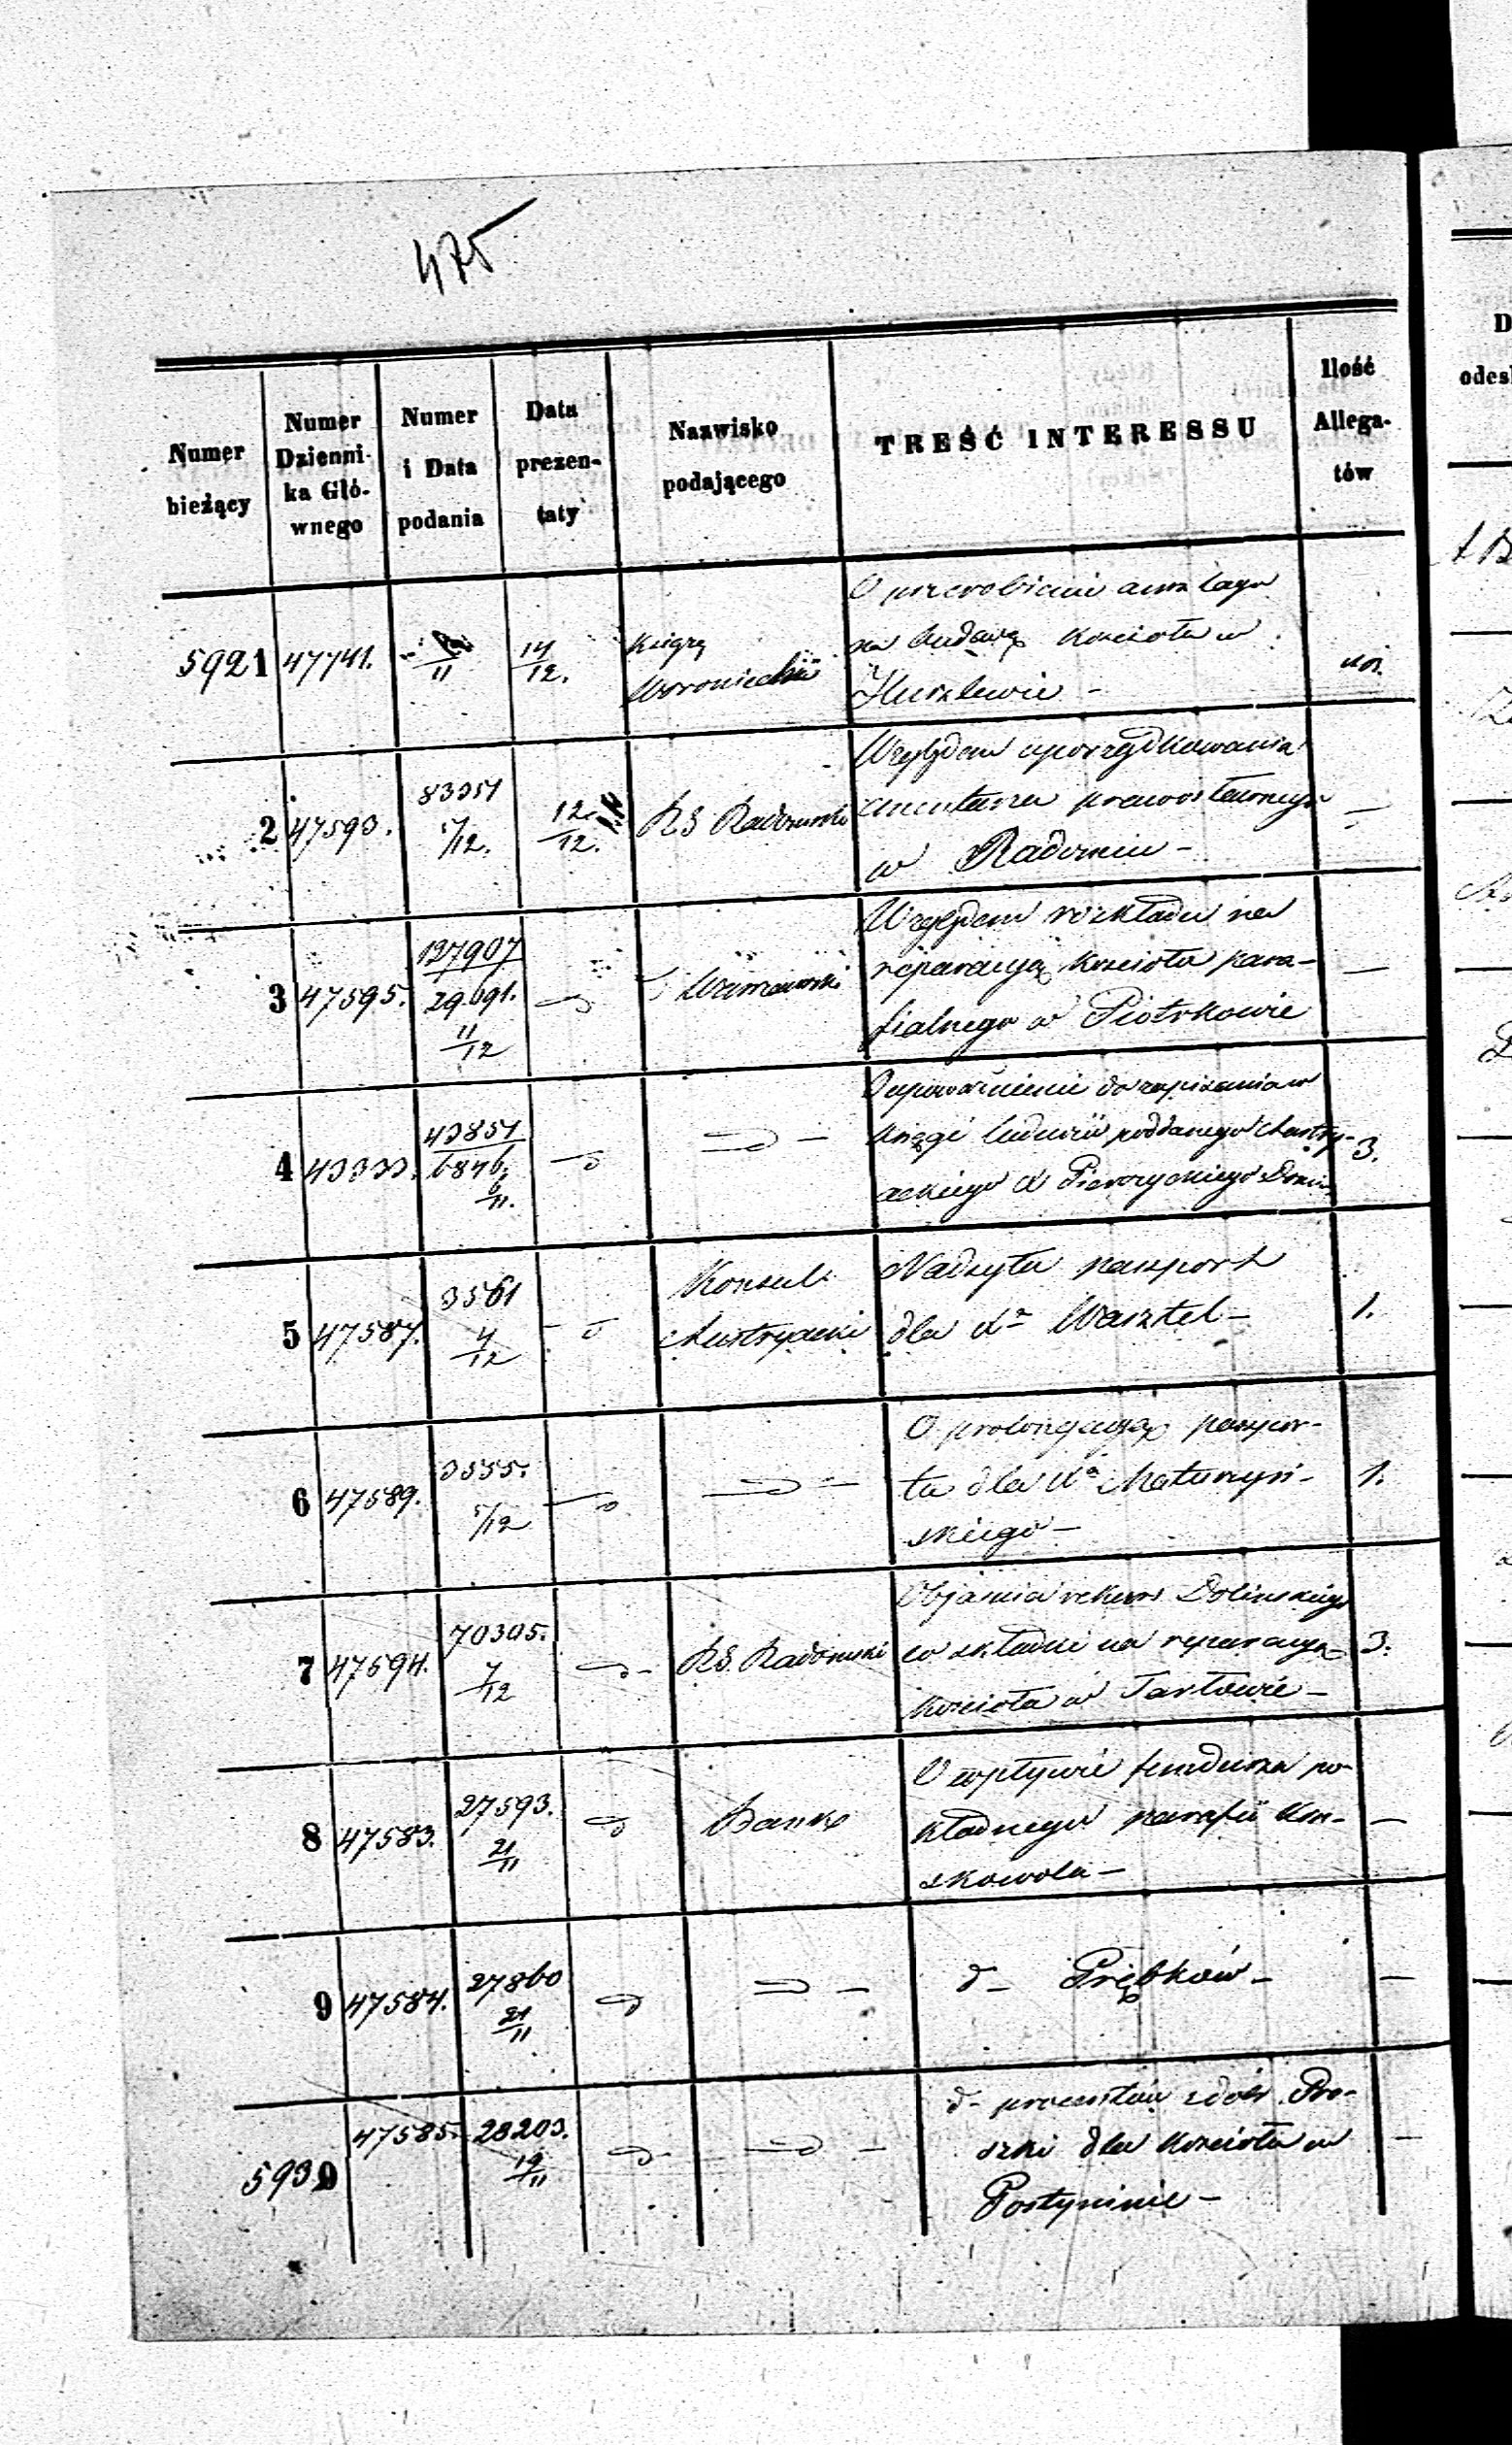 475
Numer bieżący
Numer Dzienni- ka Głó- wnego
Numer i Data podania
Data prezen- taty
Nazwisko podającego
TREŚĆ INTERESSU
Ilość Allega- tów
5921 47741. 11 14/12. Książę Woroniecki
O przerobienie anszlagu
na budowę kościoła w
Huszlewie -
2 47593. 5/12. 12/12. RG Radomski
Względem uporządkowania
cmentarza prawosławnego
w Radomiu -
3 47595. 127907/29,091. 11/12 d Warszawski
Względem rozkładu na
reparacyą kościoła para-
fialnego w Piotrkowie
4 43333. 43851/6846. 6/11. d d -
Upoważnienie do zapisania w
księgi ludności poddanego Austry-
ackiego
3.
5 47587. 3561 4/12 - d Konsul Austryacki
Nadsyła paszport
dla Warsztel -
1.
6 47589. 3555. 5/12 d d -
O prolongacyą paszpor-
tu dla Maturzyń-
skiego -
1.
7 47594. 70305. 7/12 d - RG. Radomski
Objaśnia rekurs Dolinskiego
w składki na reparacyą
kościoła w Tarłowie -
3.
8 47583. 27593. 21/11 d Bank
O wpływie funduszu po-
kładnego parafii Koń-
skowola -
-
9 47584. 27860 21/11 d d -
d - Priębków -
-
5930 47585. 28203. 19/11 d - d -
d - procentów z dóbr Pro-
szki dla kościoła w
Rostyninie -
-